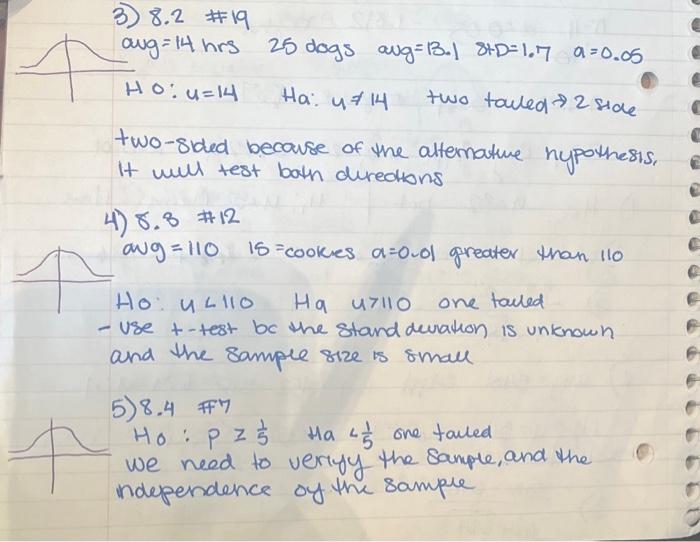 3) 8.2 #19
avg = 14 hrs 25 dogs avg = 13.1 StD = 1.7 a = 0.05
Ho: u = 14 Ha: u ≠ 14 two tailed → 2 side
two-sided because of the alternative hypothesis,
it will test both directions
4) 8.3 #12
avg = 110 15 = cookies a = 0.01 greater than 110
Ho: u < 110 Ha u > 110 one tailed
- use t-test bc the stand deviation is unknown
and the sample size is small
5) 8.4 #7
Ho: p ≥ 1/5 Ha < 1/5 one tailed
we need to verify the sample, and the
independence of the sample